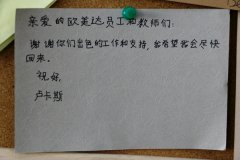 亲爱的欧美达员工和教师们:
谢谢你们出色的工作和支持,我希望我会尽快
回来。
祝好
卢卡斯